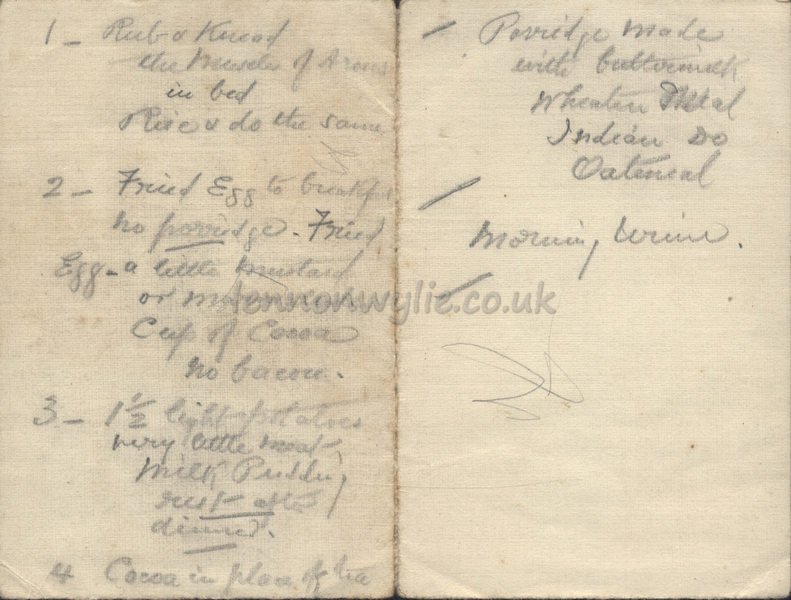 1 - Rub & Knead
the Muscles of Arms
in bed
Rise & do the same
2 - Fried Egg to breakfast
no porridge. Fried
Egg - a little mustard
or
Cup of Cocoa
no bacon.
3 - 1 1/2 light potatoes
very little meat,
Milk Pudding
rest after
dinner.
4 Cocoa in place of tea
Porridge made
with buttermilk
Wheaten Meal
Indian Do
Oatmeal
Morning Urine.
lennonwylie.co.uk